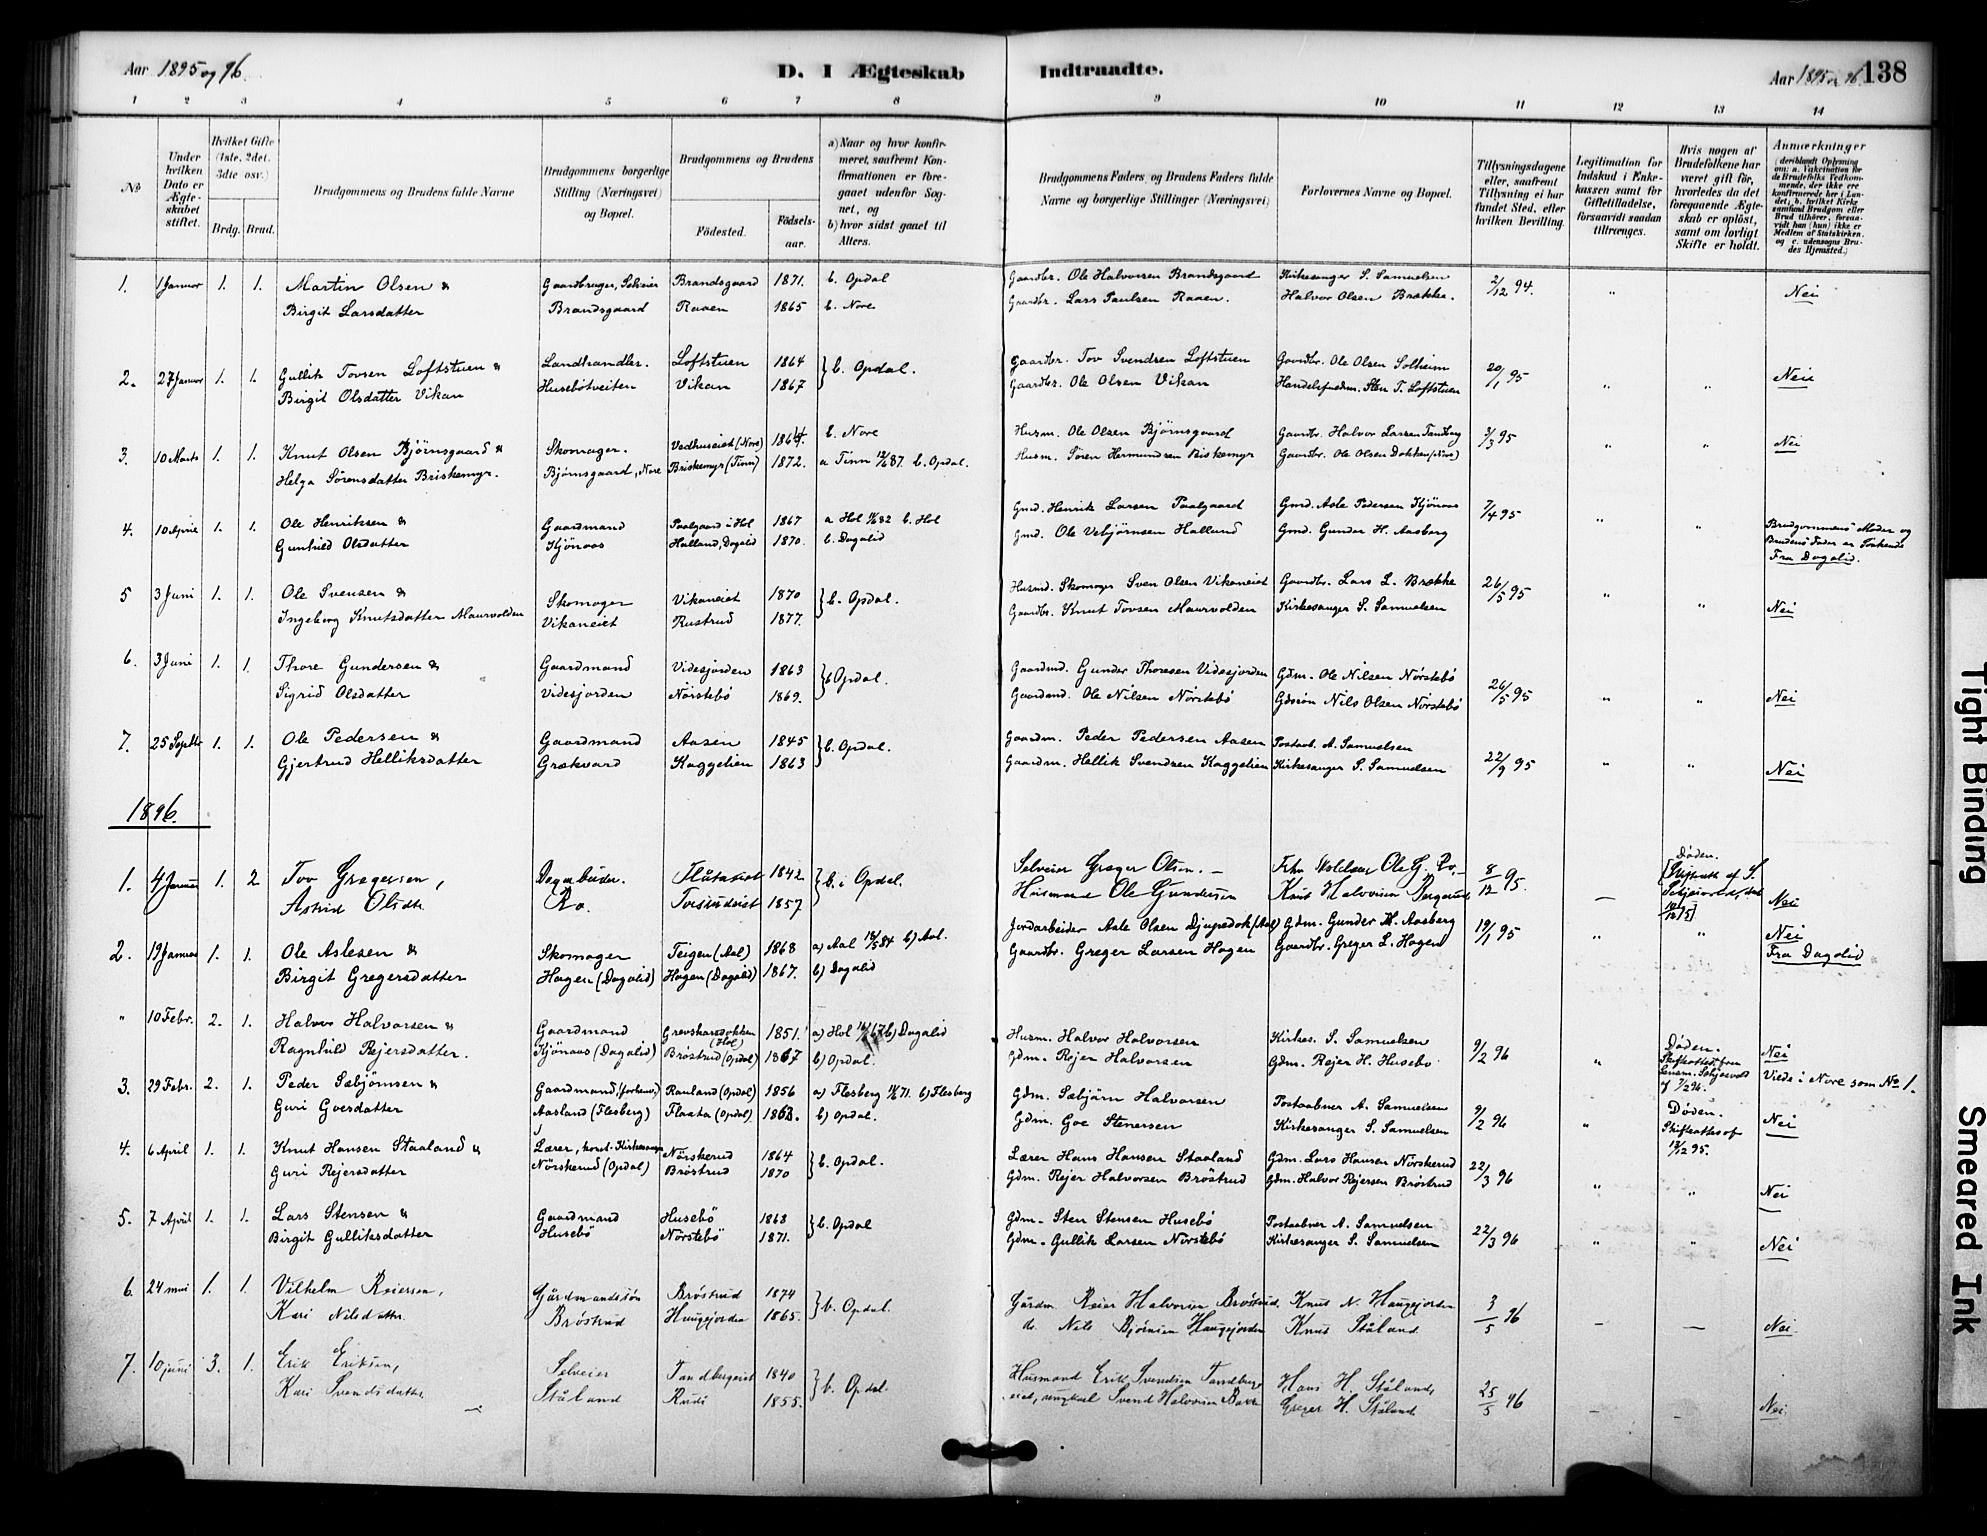 Aar 1895 og 96.
D. I Ægteskab Indtraadte.
Aar 1895 og 96. 138
1 2 3 4 5 6 7 8 9 10 11 12 13 14
No
Under hvilken Dato er Ægteskabet stiftet.
Hvilket Gifte (1ste, 2det, 3die osv.)
Brdg. Brud.
Brudgommens og Brudens fulde Navne
Brudgommens borgerlige Stilling (Næringsvei) og Bopæl.
Brudgommens og Brudens
Fødested.
Fødselsaar.
a) Naar og hvor konfirmeret, saafremt Konfirmationen er foregaaet udenfor Sognet, og
b) hvor sidst gaaet til Alters.
Brudgommens Faders og Brudens Faders fulde Navne og borgerlige Stillinger (Næringsvei)
Forlovernes Navne og Bopæl.
Tillysningsdagene eller, saafremt Tillysning ei har fundet Sted, efter hvilken Bevilling.
Legitimation for Indskud i Enkekassen samt for Giftetilladelse, forsaavidt saadan tiltrænges.
Hvis nogen af Brudefolkene har været gift før, hvorledes da det foregaaende Ægteskab er opløst, samt om lovligt Skifte er holdt.
Anmærkninger
(deriblandt Oplysning om: a. Vakcination for de Brudefolks Vedkommende, der ikke ere konfirmerede her i Landet; b. hvilket Kirkesamfund Brudgom eller Brud tilhører, forsaavidt han (hun) ikke er Medlem af Statskirken, og c. udensogns Brudes Hjemsted.)
1. 1 Januar 1. 1. Martin Olsen & Gaardbruger, Selveier Brandsgaard 1871. b. Opdal Gaardbr. Ole Halvorsen Brandsgaard Kirkesanger S. Samuelsen 2/12 94. " Nei
Birgit Larsdatter Brandsgaard Raaen 1865 b. Nore Gaardbr. Lars Paulsen Raaen. Halvor Olsen Brække.
2. 27 Januar 1. 1. Gullik Tovsen Loftstuen & Landhandler. Loftstuen 1864 } b. Opdal. Gaardbr. Tov Svendsen Loftstuen Gaardbr. Ole Olsen Solheim 20/1 95 " " Nei
Birgit Olsdatter Vikan Husebötveiten Vikan 1867 Gaardbr. Ole Olsen Vikan Handelsfuldm. Sten T. Loftstuen
3. 10 Marts 1. 1. Knut Olsen Bjørnsgaard & Skomager. Vedhuseiet (Nore) 1864. b. Nore Husm. Ole Olsen Bjørnsgaard Gaardbr. Halvor Larsen Tandberg 3/3 95 " " Nei
Helga Sörensdatter Briskemyr. Bjørnsgaard, Nore Briskemyr (Tinn) 1872. a Tinn 87. b. Opdal. Husm. Sören Hermundsen Briskemyr Gaardbr. Ole Olsen Dokken (Nore)
4. 10 April 1. 1. Ole Henriksen & Gaardmand Paalgaard i Hol 1867 a Hol 82 b. Hol Gmd. Henrik Larsen Paalgaard Gmd. Asle Pedersen Kjönaas 7/4 95 " " Brudgommens Moder og
Gunhild Olsdatter Kjönaas Halland, Dagalid 1870. b. Dagalid Gmd. Ole Vebjørnsen Halland Gmd. Gunder H. Aasberg Brudens Fader er Søskende
Fra Dagalid.
5 3 Juni 1. 1. Ole Svensen & Skomager Vikaneiet 1870 } b. Opdal. Husmd. Skomager Sven Olsen Vikaneiet Gaardbr. Lars L. Brække 26/5 95 " " Nei
Ingeborg Knutsdatter Maurvolden Vikaneiet Rustrud 1877. Gaardbr. Knut Tovsen Maurvolden Kirkesanger S. Samuelsen
6. 3 Juni 1. 1. Thore Gundersen & Gaardmand Videsjorden 1863 } b. Opdal. Gaardmd. Gunder Thoresen Videsjorden Gdm. Ole Nilsen Nörstebö 26/5 95 " " Nei
Sigrid Olsdatter Videsjorden Nöistebö 1869. Gaardmd. Ole Nilsen Nörstebö Gdssön Nils Olsen Nörstebö
7. 25 Septbr 1. 1. Ole Pedersen & Gaardmand Aasen 1845 } b. Opdal. Gaardm. Peder Pedersen Aasen Postaab. A. Samuelsen 22/9 95 " " Nei
Gjertrud Helliksdatter Grækvard Kaggelien 1863 Gaardm. Hellik Svendsen Kaggelien Kirkesanger S. Samuelsen
1896.
1. 4 Januar 1. 2 Tov Gregersen, Dagarbeider. Flåtaket 1842 } b. i Opdal. Selveier Greger Olsen. Ole G. Ro. 8/12 95. — Døden. Nei
Astrid Olsdtr. Ro. Torsrudeiet 1857 Husmand Ole Gundersen Knut Halvorsen
2. 19 Januar 1. 1. Ole Aslesen & Skomager Teigen (Aal) 1868 a) Aal 18/5 84 b) Aal. Jordarbeider Asle Olsen Djupedok (Aal) Gdm. Gunder H. Aasberg 19/1 95 " " Nei
Birgit Gregersdatter Hagen (Dagalid) Hagen (Dagalid) 1867. b) Dagalid Gaardbr. Greger Larsen Hagen Gaardbr. Greger L. Hagen Fra Dagalid
" 10 Febr. 2. 1. Halvor Halvorsen & Gaardmand Grevskardokken (Hol) 1851. a) Hol 67 b) Dagalid Husm. Halvor Halvorsen Kirkes. S. Samuelsen 9/2 96 " Døden. Nei
Ragnhild Rejersdatter. Kjönaas (Dagalid) Bröstrud (Opdal) 1867 b) Opdal. Gdm. Rejer Halvorsen Gdm. Rejer H. Husebö Vilde i Nore som No 1.
3. 29 Febr. 2. 1. Peder Sæbjörnsen & Gaardmand, forhenv. Rauland (Opdal) 1856 a) Flesberg 71. b) Flesberg Gdm. Sæbjörn Halvorsen Postaabner A. Samuelsen 9/2 96 " Døden. Nei
Guri Goesdatter Aasland (Flesberg) Flaata (Opdal) 1863. b) Opdal. Gdm. Goe Stenersen Kirkesanger S. Samuelsen Skifteattest af 13/12 95.
4. 6 April 1. 1. Knut Hansen Staaland & Lærer, const. Kirkesanger Nörskerud 1864 } b. Opdal. Lærer Hans Hansen Staaland Gdm. Lars Hansen Nörskerud 22/3 96 " " Nei
Guri Rejersdatter Nörskerud (Opdal) Bröstrud 1870 Gdm. Rejer Halvorsen Bröstrud Gdm. Halvor Rejersen Bröstrud
5. 7 April 1. 1. Lars Stensen & Gaardmand Husebö 1868 } b. Opdal Gdm. Sten Stensen Husebö Postaabner A. Samuelsen 22/3 96 " " Nei
Birgit Gulliksdatter Husebö Nörstebö 1871. Gdm. Gullik Larsen Nörstebö Kirkesanger S. Samuelsen
6. 24 mai 1. 1. Vilhelm Reiersen, Gårdmandssön Bröstrud 1874 } b. Opdal. Gårdm Reier Halvorsen Bröstrud. Knut N. Haugejorden 3/5 96 — — Nei.
Kari Nilsdatter. Bröstrud Haugejorden 1865. do. Nils Bjørnsen Haugejorden Knut Ståland.
7. 10 juni 3. 1. Erik Eriksen, Selveier Tandbergeiet 1840 } b. Opdal Husmand Erik Svendsen Tandberg- Hans H. Ståland, 25/5 96 — — Nei.
Kari Svendsdatter Ståland Rudi 1855. eiet, ungkarl Svend Halvorsen Greger H. Ståland
Tight Binding
Smeared Ink